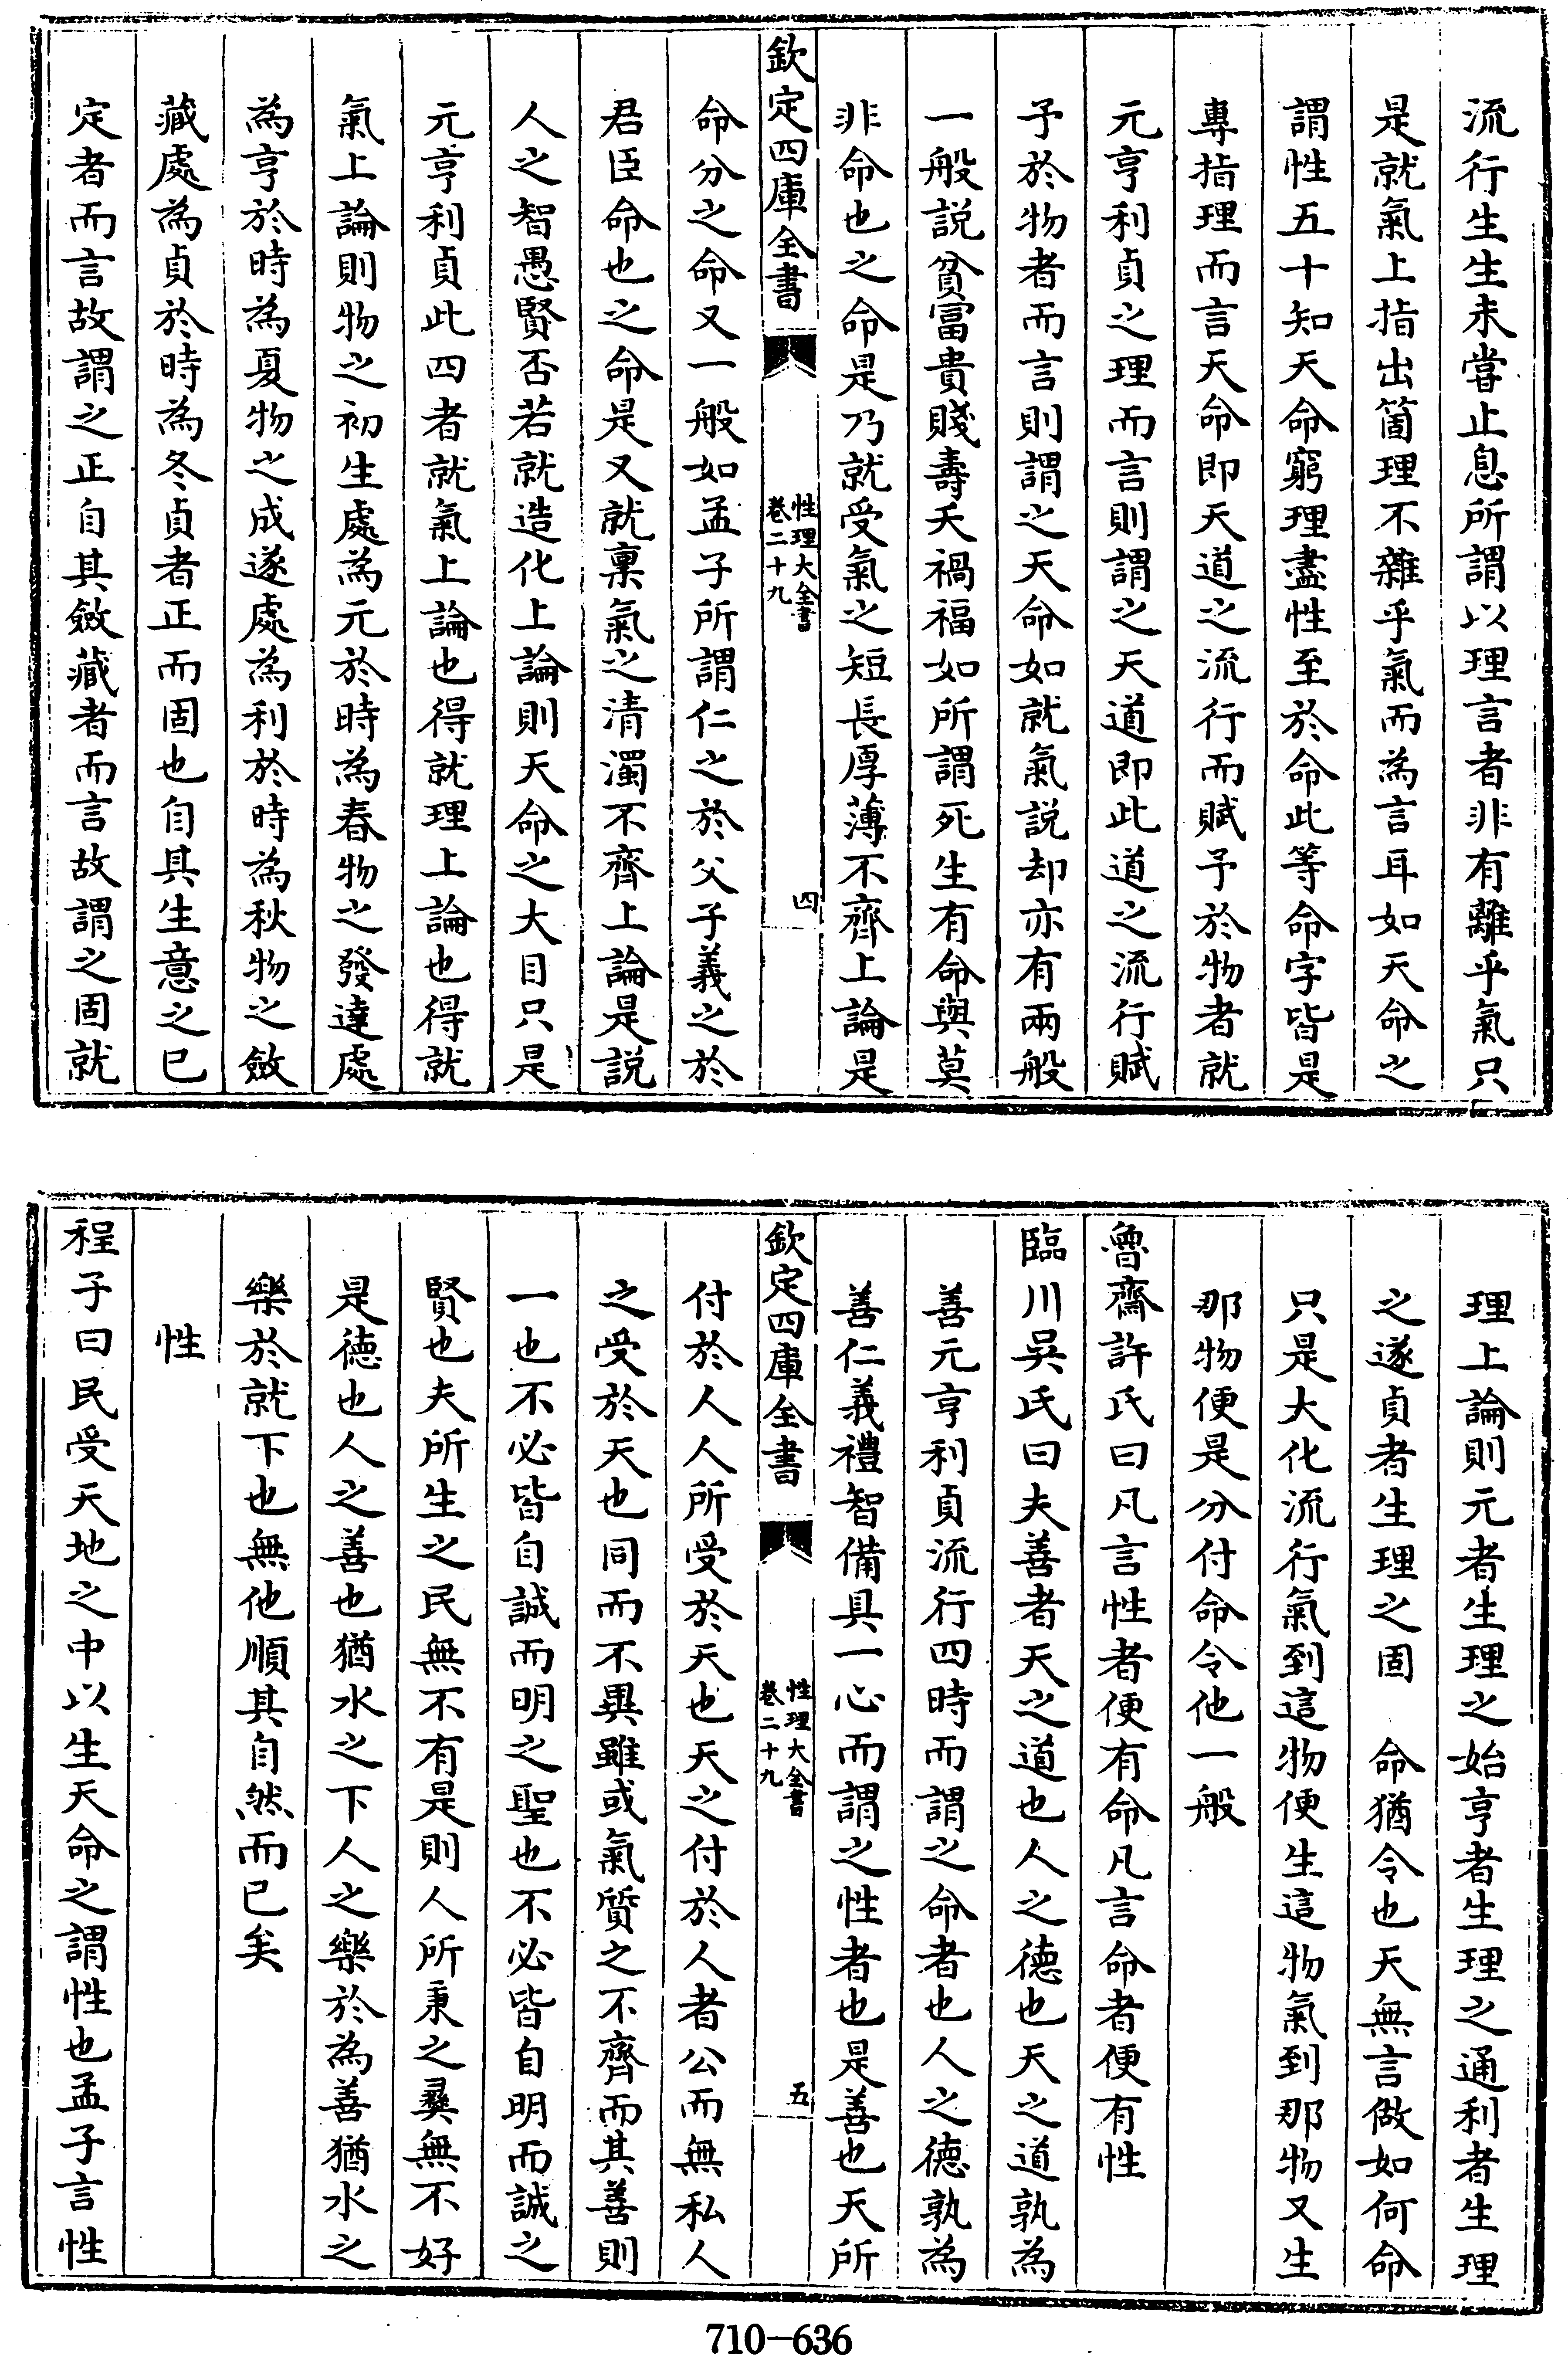 流行生生未嘗止息所謂以理言者非有離乎氣只
是就氣上指出箇理不雜乎氣而為言耳如天命之
謂性五十知天命窮理盡性至於命此等命字皆是
專指理而言天命即天道之流行而賦予於物者就
元亨利貞之理而言則謂之天道即此道之流行賦
予於物者而言則謂之天命如就氣説却亦有兩般
一般説貧富貴賤壽夭禍福如所謂死生有命與莫
非命也之命是乃就受氣之短長厚薄不齊上論是
欽定四庫全書
性理大全書
卷二十九
四
命分之命又一般如孟子所謂仁之於父子義之於
君臣命也之命是又就稟氣之清濁不齊上論是説
人之智愚賢否若就造化上論則天命之大目只是
元亨利貞此四者就氣上論也得就理上論也得就
氣上論則物之初生處為元於時為春物之發達處
為亨於時為夏物之成遂處為利於時為秋物之斂
藏處為貞於時為冬貞者正而固也自其生意之已
定者而言故謂之正自其斂藏者而言故謂之固就
理上論則元者生理之始亨者生理之通利者生理
之遂貞者生理之固　命猶令也天無言做如何命
只是大化流行氣到這物便生這物氣到那物又生
那物便是分付命令他一般
魯齋許氏曰凡言性者便有命凡言命者便有性
臨川吳氏曰夫善者天之道也人之德也天之道孰為
善元亨利貞流行四時而謂之命者也人之德孰為
善仁義禮智備具一心而謂之性者也是善也天所
欽定四庫全書
性理大全書
卷二十九
五
付於人人所受於天也天之付於人者公而無私人
之受於天也同而不異雖或氣質之不齊而其善則
一也不必皆自誠而明之聖也不必皆自明而誠之
賢也夫所生之民無不有是則人所秉之彞無不好
是德也人之善也猶水之下人之樂於為善猶水之
樂於就下也無他順其自然而已矣
性
程子曰民受天地之中以生天命之謂性也孟子言性
710-636